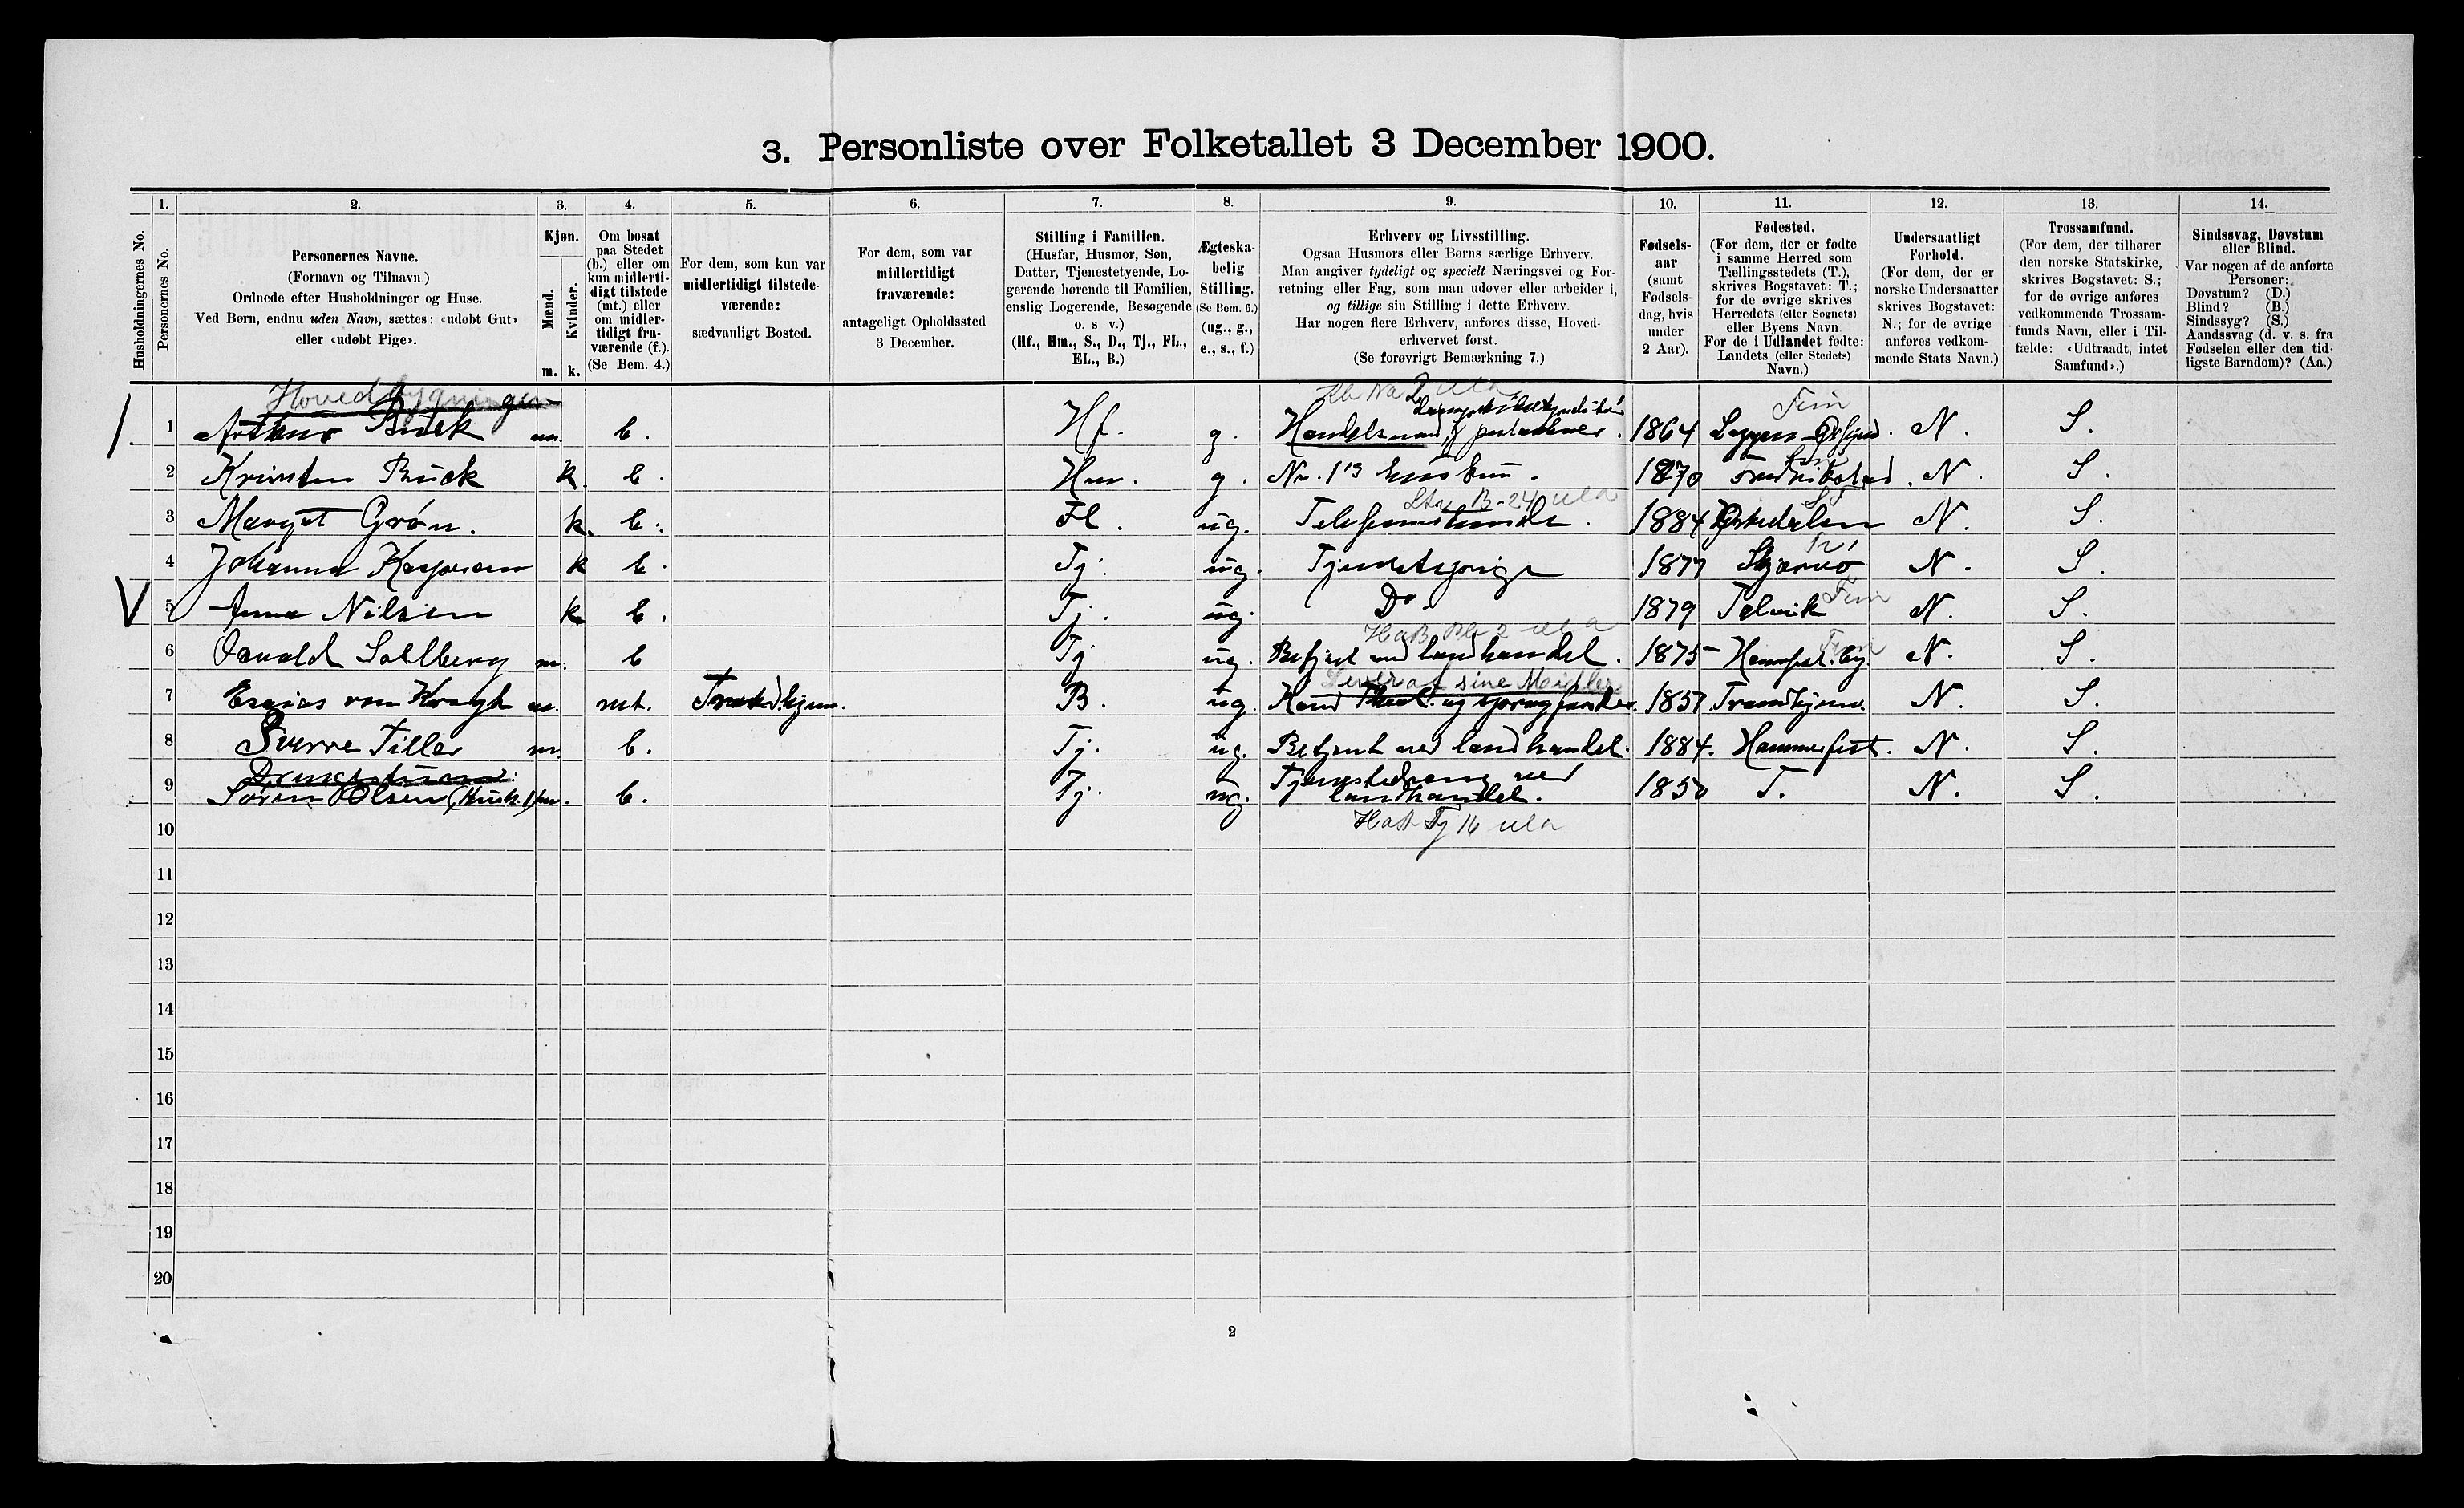 3. Personliste over Folketallet 3 December 1900.
Husholdningernes No.
1.
Personernes No.
2.
Personernes Navne.
(Fornavn og Tilnavn)
Ordnede efter Husholdninger og Huse.
Ved Børn, endnu uden Navn, sættes: «udøbt Gut»
eller «udøbt Pige».
3.
Kjøn.
Mænd.
m.
Kvinder.
k.
4.
Om bosat
paa Stedet
(b.) eller om
kun midlerti-
digt tilstede
(mt.) eller
om midler-
tidigt fra-
værende (f.).
(Se Bem. 4.)
5.
For dem, som kun var
midlertidigt tilstede-
værende:
sædvanligt Bosted.
6.
For dem, som var
midlertidigt
fraværende:
antageligt Opholdssted
3 December.
7.
Stilling i Familien.
(Husfar, Husmor, Søn,
Datter, Tjenestetyende, Lo-
gerende hørende til Familien,
enslig Logerende, Besøgende
o. s v.)
(Hf., Hm., S., D., Tj., FL.,
EL., B.)
8.
Ægteska-
belig
Stilling.
(Se Bem. 6.)
(ug., g.,
e., s., f.)
9.
Erhverv og Livsstilling.
Ogsaa Husmors eller Børns særlige Erhverv.
Man angiver tydeligt og specielt Næringsvei og For-
retning eller Fag, som man udøver eller arbeider i,
og tillige sin Stilling i dette Erhverv.
Har nogen flere Erhverv, anføres disse, Hoved-
erhvervet først.
(Se forøvrigt Bemærkning 7.)
10.
Fødsels-
aar
(samt
Fødsels-
dag, hvis
under
2 Aar).
11.
Fødested.
(For dem, der er fødte
i samme Herred som
Tællingsstedets (T.),
skrives Bogstavet: T.;
for de øvrige skrives
Herredets (eller Sognets)
eller Byens Navn.
For de i Udlandet fødte:
Landets (eller Stedets)
Navn.)
12.
Undersaatligt
Forhold.
(For dem, der er
norske Undersaatter
skrives Bogstavet:
N.; for de øvrige
anføres vedkom-
mende Stats Navn.)
13.
Trossamfund.
(For dem, der tilhører
den norske Statskirke,
skrives Bogstavet: S.;
for de øvrige anføres
vedkommende Trossam-
funds Navn, eller i Til-
fælde: «Udtraadt, intet
Samfund».)
14.
Sindssvag, Døvstum
eller Blind.
Var nogen af de anførte
Personer:
Døvstum? (D.)
Blind? (B.)
Sindssyg? (S.)
Aandssvag (d. v. s. fra
Fødselen eller den tid-
ligste Barndom)? (Aa.)
Hovedbygningen
1 Buck m. b. Hf. g. Handelsmand 1864 N. S.
Fin
2 Buck k. b. Hm. g. 1870 N. S.
3 Margot Grøn. k. b. Fl. ug. 1884 N. S.
4 Johanna k b. Tj. ug. Tjenestepige 1877 Skjærvø N. S.
5 Anna Nilsen k b. Tj. ug. Do. 1879 Talvik Fin N. S.
6 Osvald Sollberg m. b Tj ug. Betjent ved landhandel. 1875 Hammfest. by. N. S.
Lever af sine Midler
7 Esaias von Krogh m. mt. Trondhjem. B. ug. Kand Theol. og sprogforsker. 1857 Trondhjem. N. S.
8 Sverre Tiller m. b. Tj. ug. Betjent ved landhandel. 1884. Hammerfest. N. S.
Drengestuen:
9 Søren Olsen m. b. Tj. ug. Tjenestedreng ved landhandel. 1850 T. N. S.
10
11
12
13
14
15
16
17
18
19
20
2